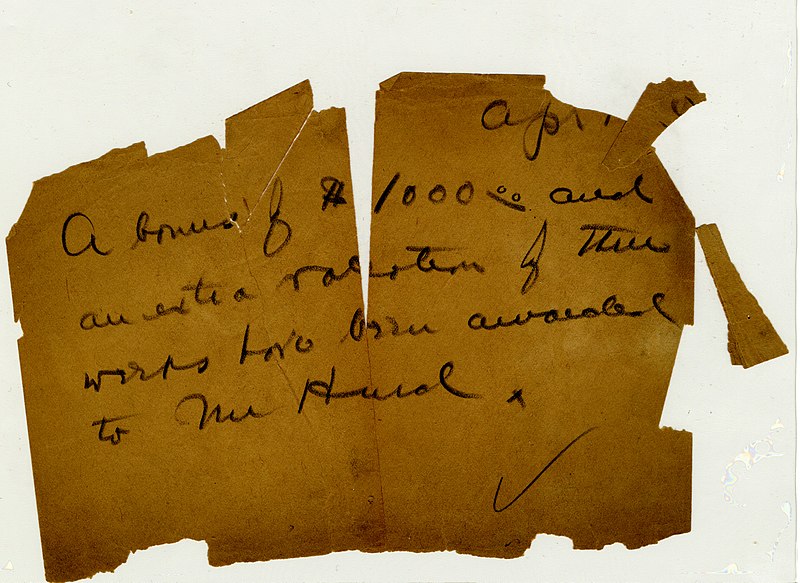 April 19
A bonus of $1000.00 and
an extra vacation of three
weeks have been awarded
to Mr Hurd.